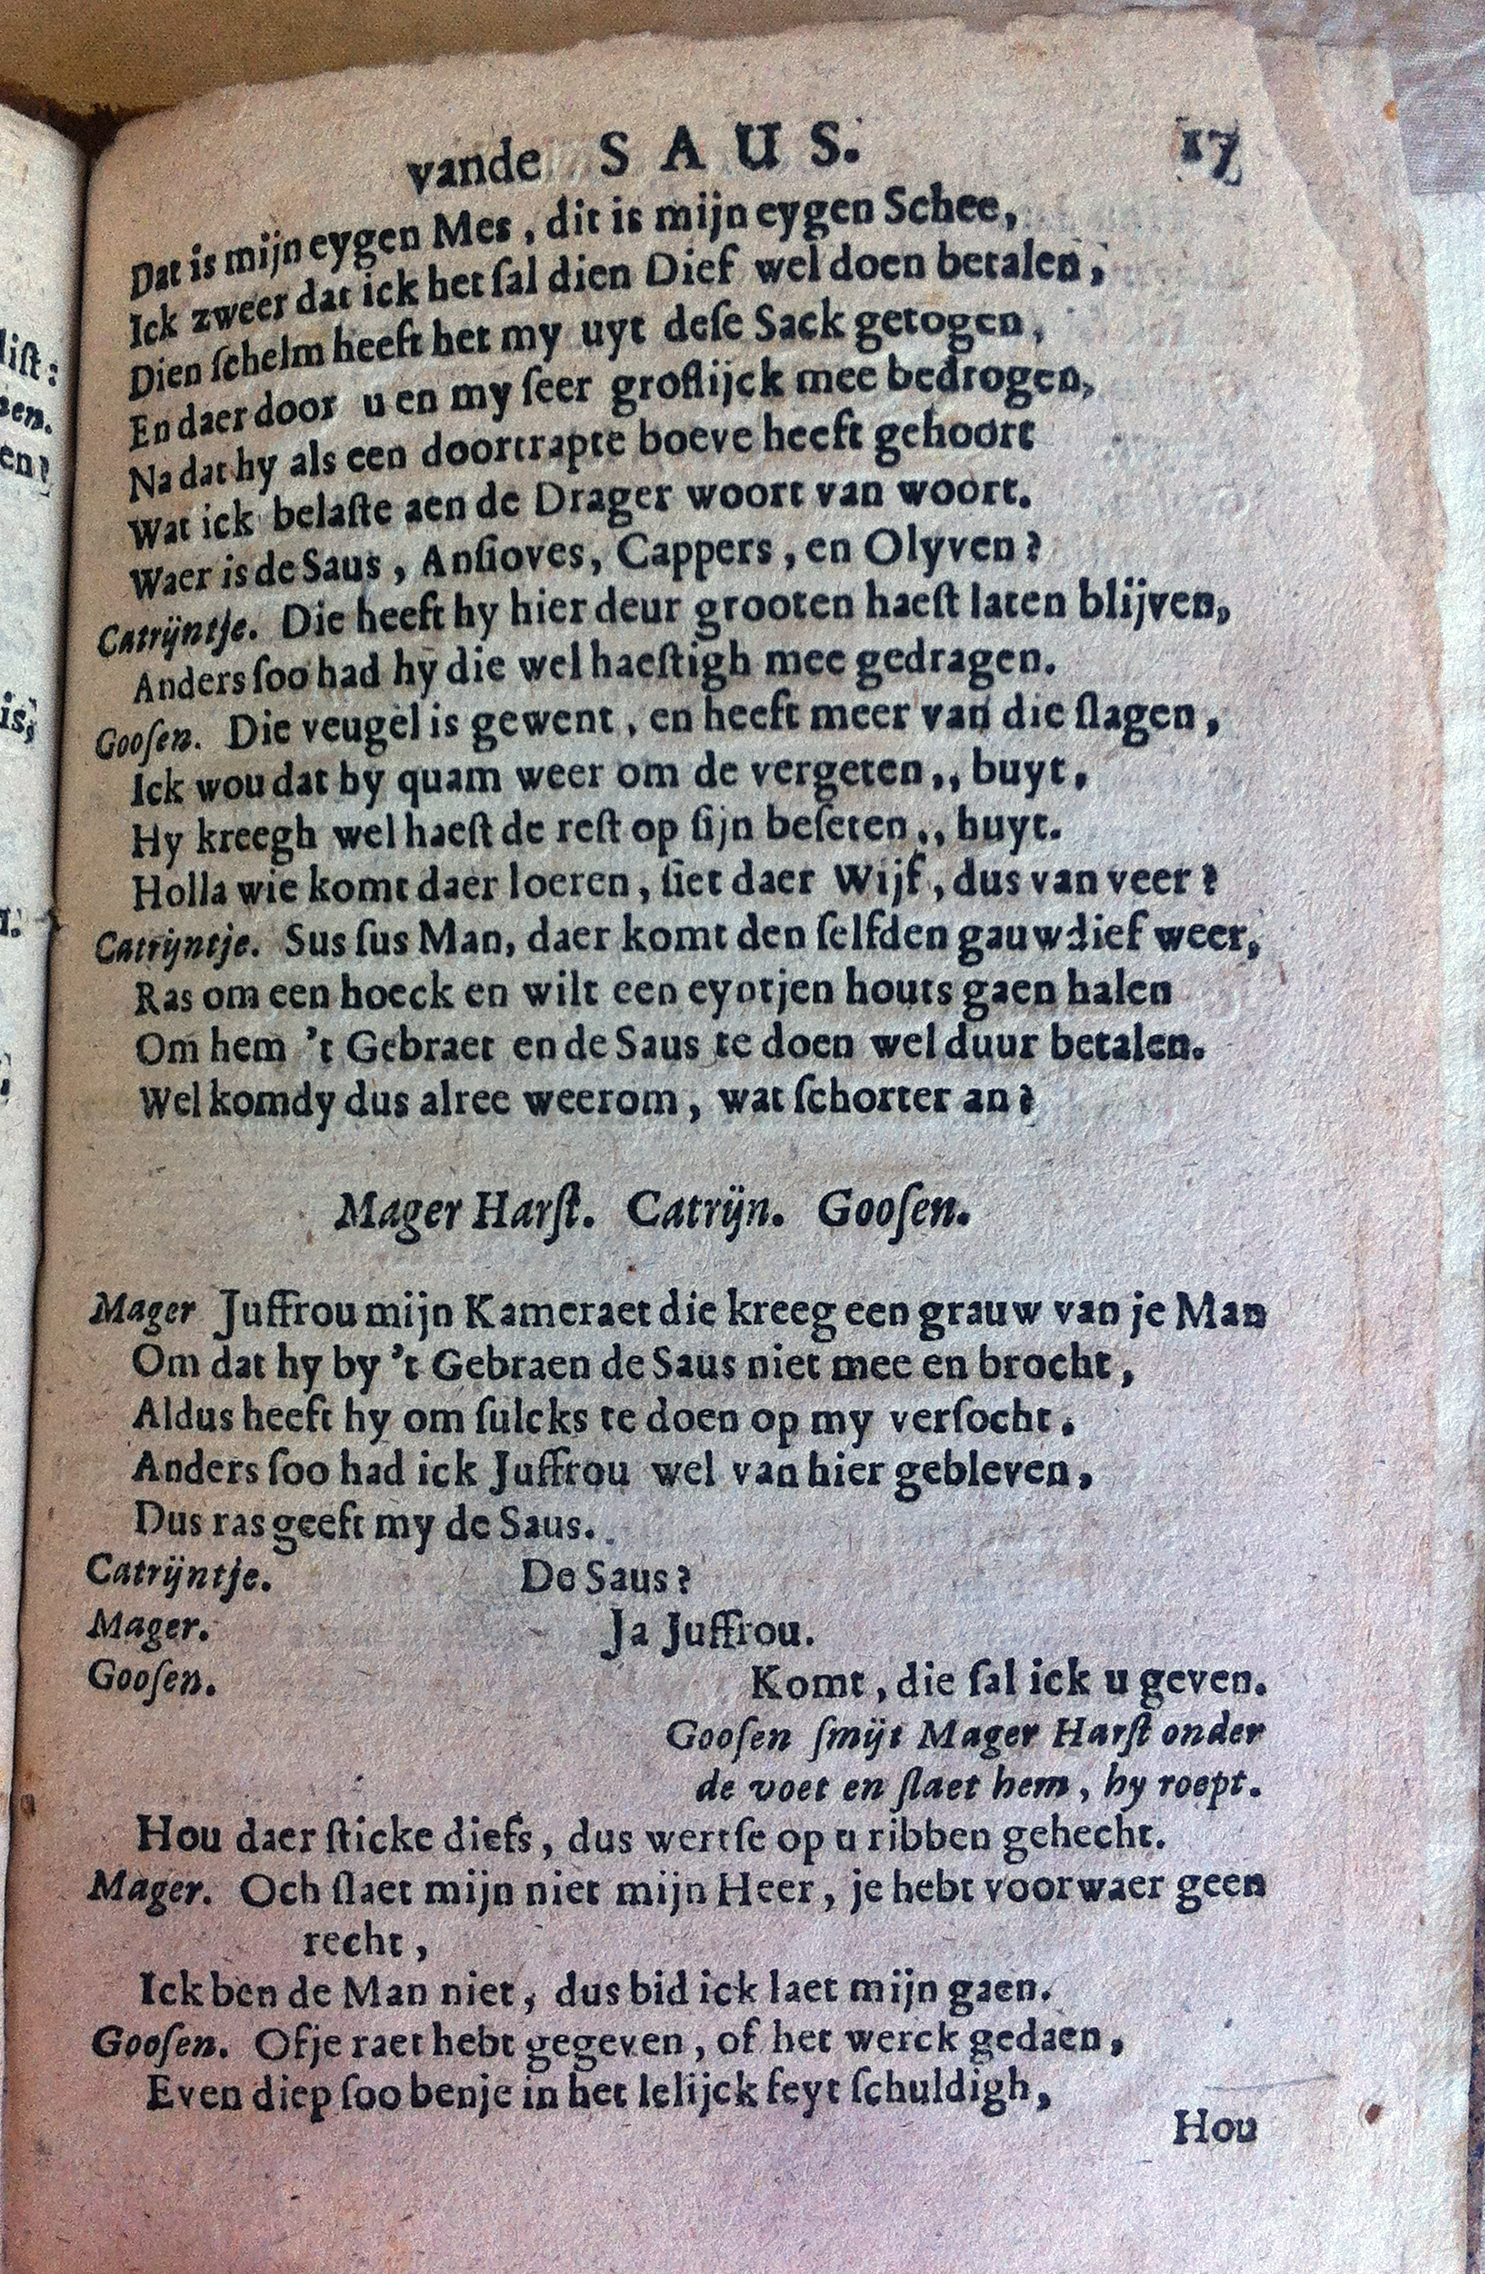 vande SAUS. 17
Dat is mijn eygen Mes, dit is mijn eygen Schee,
Ick zweer dat ick het ſal dien Dief wel doen betalen,
Dien ſchelm heeft het my uyt deſe Sack getogen,
En daer door u en my ſeer groflijck mee bedrogen,
Na dat hy als een doortrapte boeve heeft gehoort
Wat ick belaſte aen de Drager woort van woort.
Waer is de Saus, Anſioves, Cappers, en Olyven?
Catrijntje. Die heeft hy hier deur grooten haeſt laten blijven,
Anders ſoo had hy die wel haeſtigh mee gedragen.
Gooſen. Die veugel is gewent, en heeft meer van die ſlagen,
Ick wou dat hy quam weer om de vergeten,, buyt,
Hy kreegh wel haeſt de reſt op ſijn beſeten,, huyt.
Holla wie komt daer loeren, ſiet daer Wijf, dus van veer?
Catrijntje. Sus ſus Man, daer komt den ſelfden gauwdief weer,
Ras om een hoeck en wilt een eyntjen houts gaen halen
Om hem 't Gebraet en de Saus te doen wel duur betalen.
Wel komdy dus alree weerom, wat ſchorter an?
Mager Harſt. Catrijn. Gooſen.
Mager Juffrou mijn Kameraet die kreeg een grauw van je Man
Om dat hy by 't Gebraen de Saus niet mee en brocht,
Aldus heeft hy om ſulcks te doen op my verſocht.
Anders ſoo had ick Juffrou wel van hier gebleven,
Dus ras geeft my de Saus.
Catrijntje. De Saus?
Mager. Ja Juffrou.
Gooſen. Komt, die ſal ick u geven.
Gooſen ſmijt Mager Harſt onder
de voet en ſlaet hem, hy roept.
Hou daer ſticke diefs, dus wertſe op u ribben gehecht.
Mager. Och ſlaet mijn niet mijn Heer, je hebt voorwaer geen
recht,
Ick ben de Man niet, dus bid ick laet mijn gaen.
Gooſen. Of je raet hebt gegeven, of het werck gedaen,
Even diep ſoo benje in het lelijck feyt ſchuldigh,
Hou
liſt:
en.
en?
is;